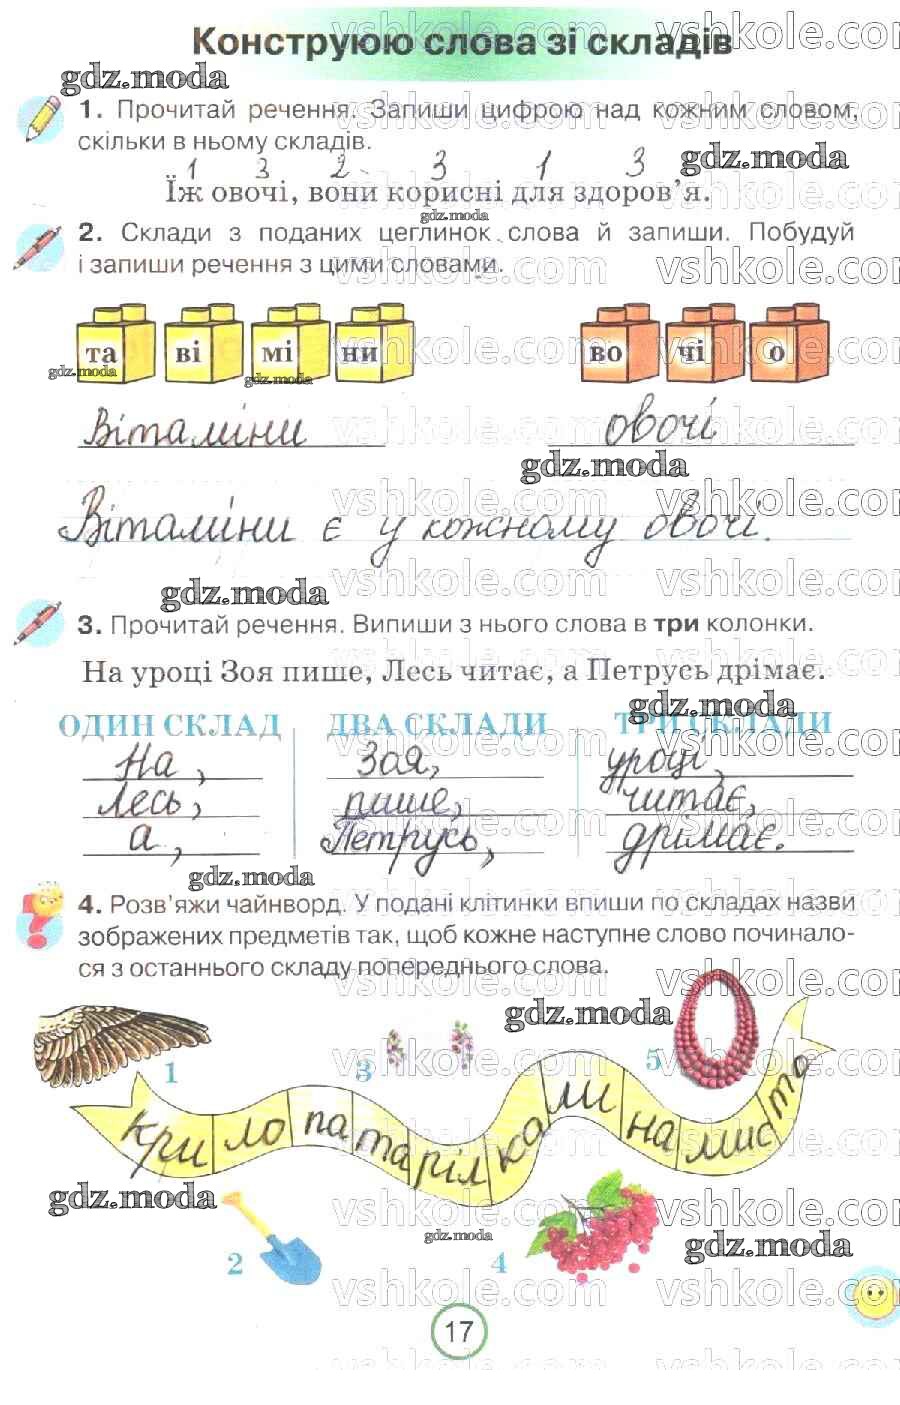 Конструюю слова зі складів
1. Прочитай речення. Запиши цифрою над кожним словом,
скільки в ньому складів.
1 3 2 3 1 3
Їж овочі, вони корисні для здоров’я.
2. Склади з поданих цеглинок слова й запиши. Побудуй
і запиши речення з цими словами.
та ві мі ни во чі о
Вітаміни овочі
Вітаміни є у кожному овочі.
3. Прочитай речення. Випиши з нього слова в три колонки.
На уроці Зоя пише, Лесь читає, а Петрусь дрімає.
ОДИН СКЛАД ДВА СКЛАДИ ТРИ СКЛАДИ
На, Зоя, уроці,
Лесь, пише, читає,
а, Петрусь, дрімає.
4. Розв’яжи чайнворд. У подані клітинки впиши по складах назви
зображених предметів так, щоб кожне наступне слово починало-
ся з останнього складу попереднього слова.
1 3 5
кри ло па та ріл ка ли на мис то
2 4
17
gdz.moda
vshkole.com